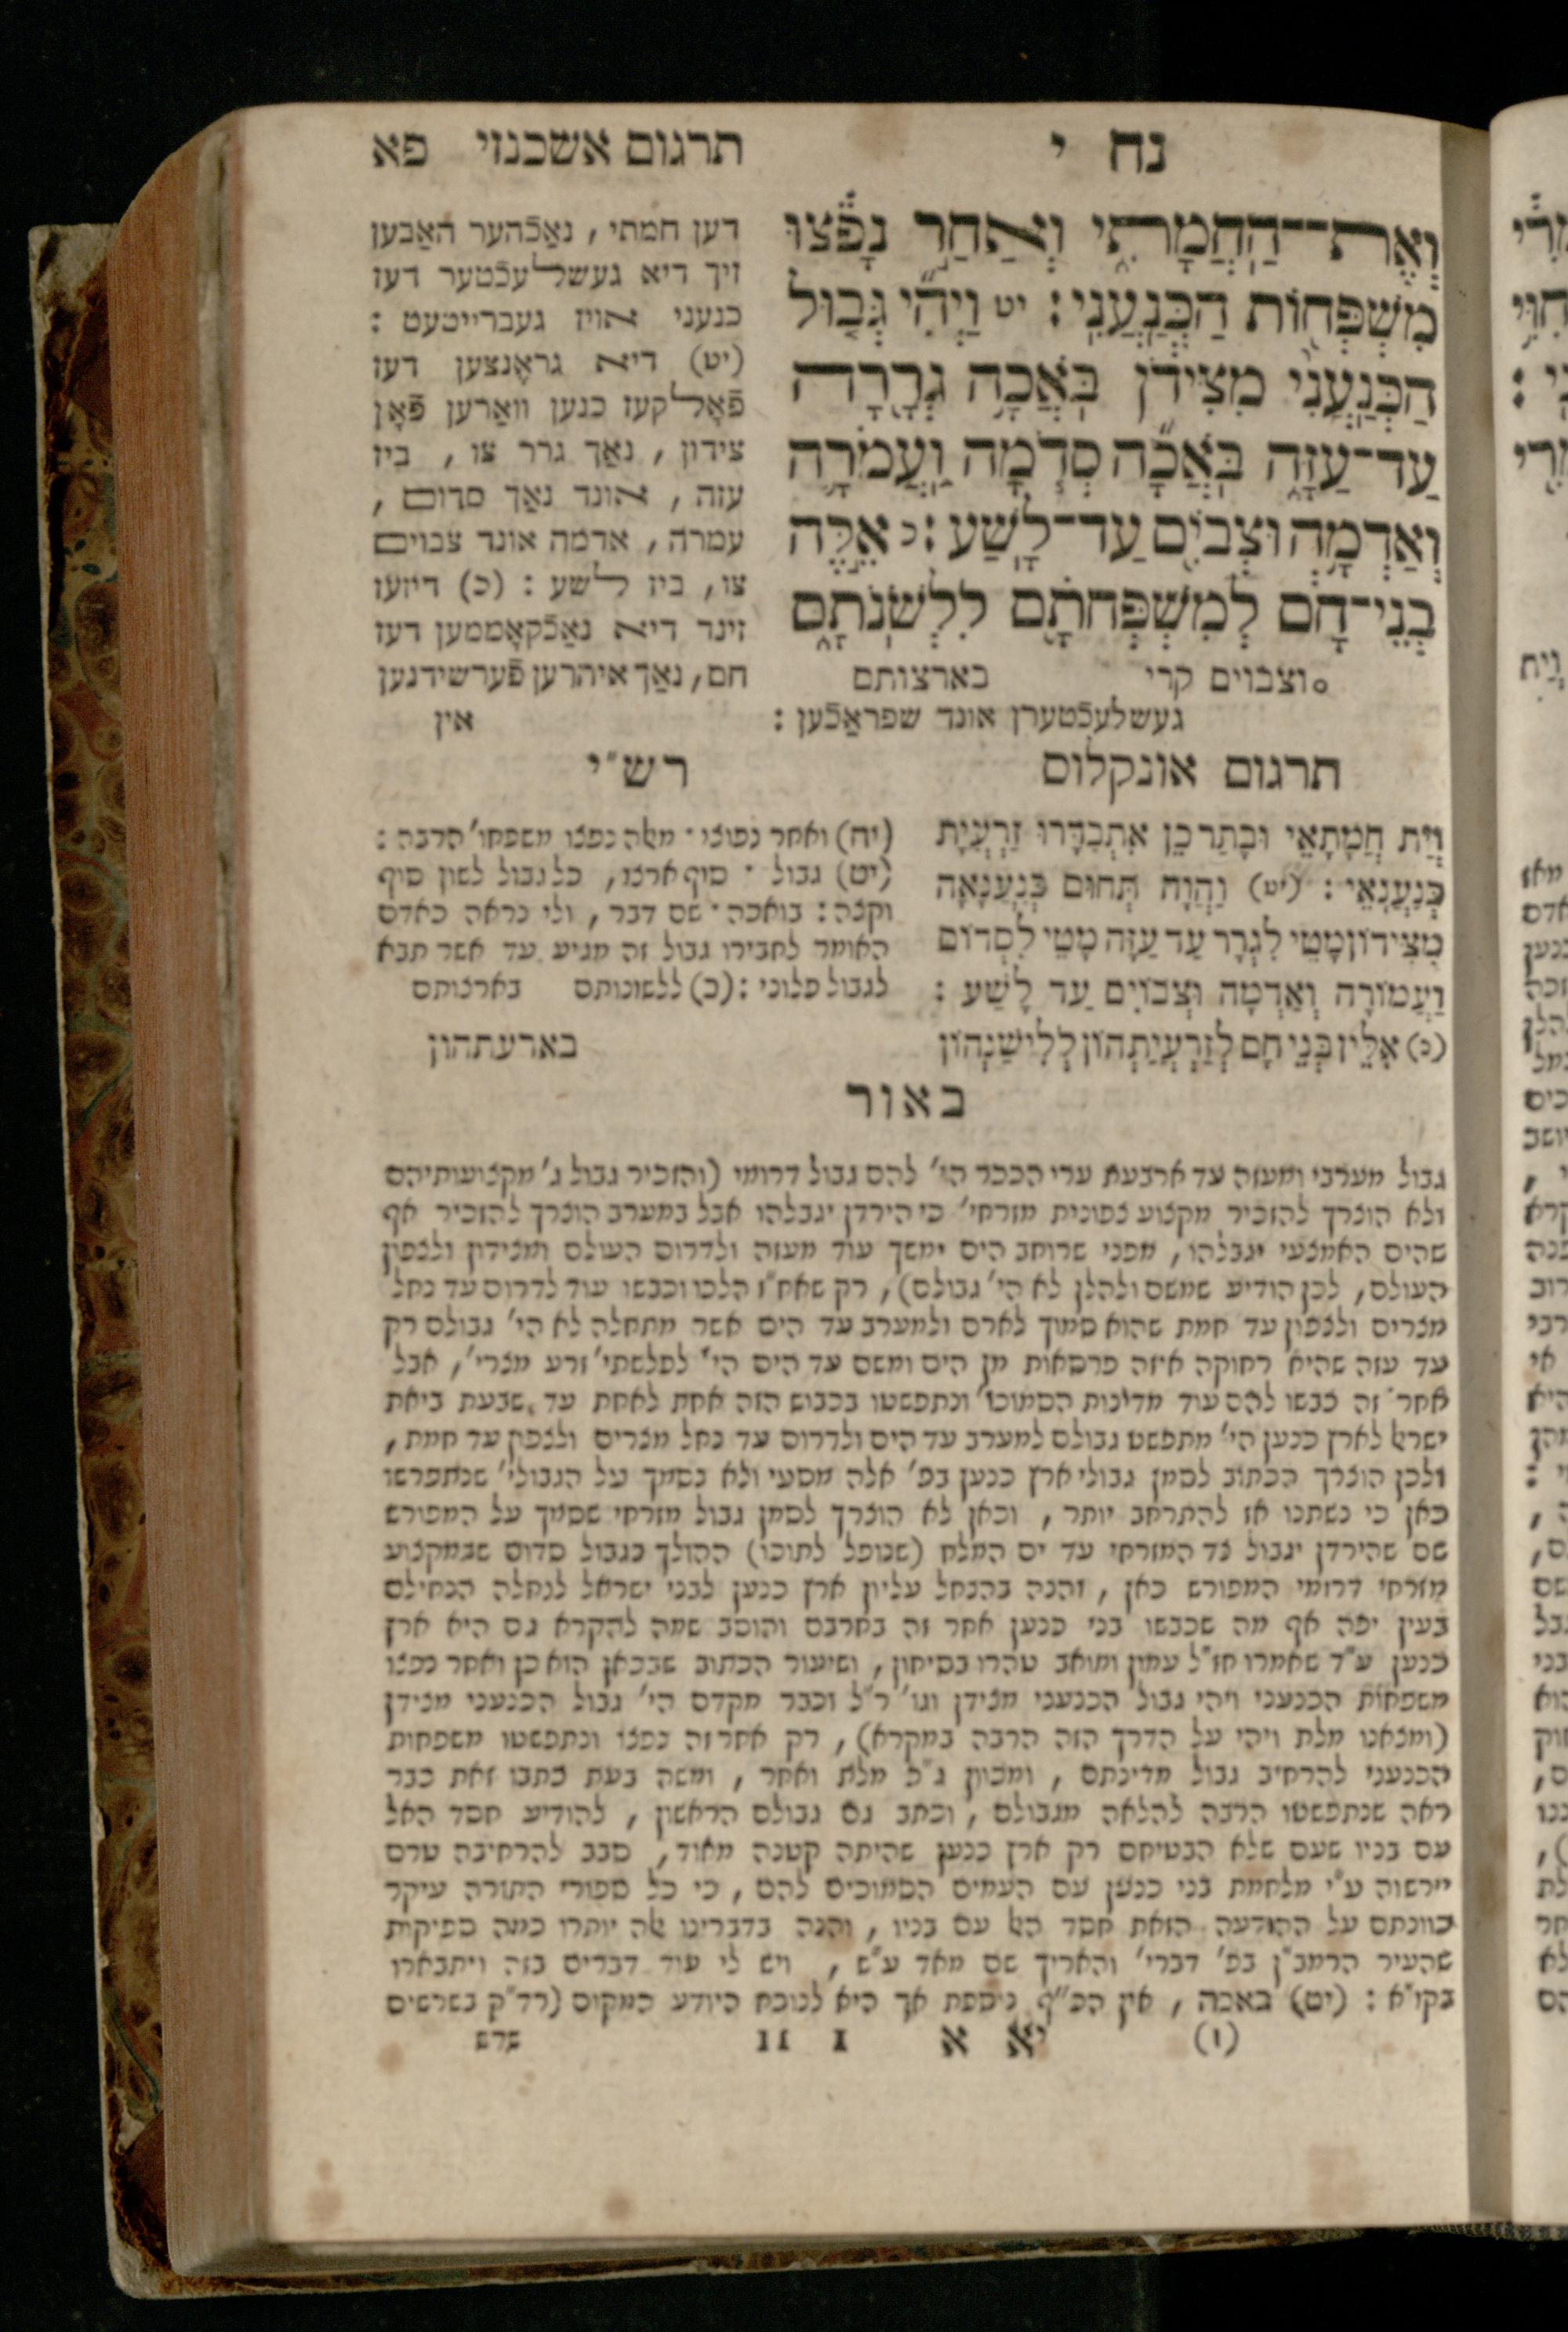 נח י
תרגום אשכנזי פא
וְאֶת־הַחֲמָתִי וְאַחַר נָפֹצוּ
מִשְׁפְּחוֹת הַכְּנַעֲנִי : יט וַיְהִי גְּבוּל
הַכְּנַעֲנִי מִצִּידֹן בֹּאֲכָה גְרָרָה
עַד־עַזָּה בֹּאֲכָה סְדֹמָה וַעֲמֹרָה
וְאַדְמָה וּצְבֹיִם עַד־לָשַׁע : כ אֵלֶּה
בְנֵי־חָם לְמִשְׁפְּחֹתָם לִלְשֹׁנֹתָם
°וצבוים קרי בארצותם
דען חמתי , נאַכֿהער האַבען
זיך דיא געשלעכֿטער דעז
כנעני אויז געברייטעט :
(יט) דיא גראֶנצען דעז
פֿאָלקעז כנען וואַרען פֿאָן
צידון , נאַך גרר צו , ביז
עזה , אונד נאַך סדום ,
עמרה , אדמה אונד צבוים
צו , ביז לשע : (כ) דיזעז
זינד דיא נאַכֿקאָממען דעז
חם , נאַך איהרען פֿערשידנען
געשלעכֿטערן אונד שפראַכֿען : אין
תרגום אונקלוס
וְיַת חֲמָתָאֵי וּבָתַר כֵּן אִתְבַּדָּרוּ זַרְעֲיַת
כְּנַעֲנָאֵי : (יט) וַהֲוָה תְּחוּם כְּנַעֲנָאָה
מִצִּידוֹן מָטֵי לִגְרָר עַד עַזָּה מָטֵי לִסְדוֹם
וַעֲמוֹרָה וְאַדְמָה וּצְבוֹיִם עַד לָשַׁע :
(כ) אִלֵּין בְּנֵי חָם לְזַרְעֲיַתְהוֹן לְלִישַׁנְהוֹן
בארעתהון
רש״י
(יח) ואחר נפוצו · מאלה נפצו משפחו׳ הרבה :
(יט) גבול · סוף ארצו , כל גבול לשון סוף
וקצה : בואכה · שם דבר , ולי נראה כאדם
האומר לחבירו גבול זה מגיע עד אשר תבא
לגבול פלוני : (כ) ללשונותם בארצותם
באור
גבול מערבי ומעזה עד ארבעת ערי הככר הי׳ להם גבול דרומי (והזכיר גבול ג׳ מקצועותיהם
ולא הוצרך להזכיר מקצוע צפונית מזרחי׳ כי הירדן יגבלהו אבל במערב הוצרך להזכיר אף
שהים האמצעי יגבלהו , מפני שרוחב הים ימשך עוד מעזה ולדרום העולם ומצידון ולצפון
העולם , לכן הודיע שמשם ולהלן לא הי׳ גבולם) , רק שאח״ז הלכו וכבשו עוד לדרום עד נחל
מצרים ולצפון עד חמת שהוא סמוך לארם ולמערב עד הים אשר מתחלה לא הי׳ גבולם רק
עד עזה שהיא רחוקה איזה פרסאות מן הים ומשם עד הים הי׳ לפלשתי׳ זרע מצרי׳ , אבל
אחר זה כבשו להם עוד מדינות הסמוכו׳ ונתפשטו בכבוש הזה אחת לאחת עד שבעת ביאת
ישראל לארץ כנען הי׳ מתפשט גבולם למערב עד הים ולדרום עד נחל מצרים ולצפון עד חמת ,
ולכן הוצרך הכתוב לסמן גבולי ארץ כנען בפ׳ אלה מסעי ולא נסמך על הגבולי׳ שנתפרשו
כאן כי נשתנו אז להתרחב יותר , וכאן לא הוצרך לסמן גבול מזרחי שסמך על המפורש
שם שהירדן יגבול צד המזרחי עד ים המלח (שנופל לתוכו) ההולך בגבול סדום שבמקצוע
מזרחי דרומי המפורש כאן , והנה בהנחל עליון ארץ כנען לבני ישראל לנחלה הנחילם
בעין יפה אף מה שכבשו בני כנען אחר זה בחרבם והוסב שמה להקרא גם היא ארץ
כנען ע״ד שאמרו חז״ל עמון ומואב טהרו בסיחון , ושיעור הכתוב שבכאן הוא כן ואחר נפצו
משפחות הכנעני ויהי גבול הכנעני מצידן וגו׳ ר״ל וכבר מקדם הי׳ גבול הכנעני מצידן
(ומצאנו מלת ויהי על הדרך הזה הרבה במקרא) , רק אחר זה נפצו ונתפשטו משפחות
הכנעני להרחיב גבול מדינתם , ומכוון ג״כ מלת ואחר , ומשה בעת כתבו זאת כבר
ראה שנתפשטו הרבה להלאה מגבולם , וכתב גם גבולם הראשון , להודיע חסד האל
עם בניו שעם שלא הבטיחם רק ארץ כנען שהיתה קטנה מאוד , סבב להרחיבה טרם
יירשוה ע״י מלחמת בני כנען עם העמים הסמוכים להם , כי כל ספורי התורה עיקר
כוונתם על ההודעה הזאת חסד האל עם בניו , והנה בדברינו אלה יותרו כמה ספיקות
שהעיר הרמב״ן בפ׳ דברי׳ והאריך שם מאד ע״ש , ויש לי עוד דברים בזה ויתבארו
בקו״א : (יט) באכה , אין הכ״ף נוספת אך היא לנוכח היודע המקום (רד״ק בשרשים
(I) יא א I II שרש